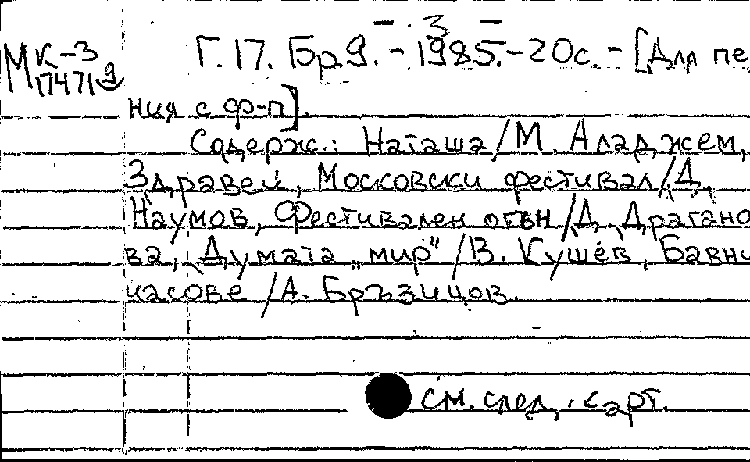 - 3 -
МК-3
174719
Г.17. Бр 9. - 1985. - 20с. - [Для пе
ния с ф-п].
Содерж.: Наташа/М. Аладжем,
Здравей, Московски фестивал/Д.
Наумов, Фестивален огън/Д. Драгано
ва, Думата „мир"/В. Кушев, Бавни
часове/А. Бръзицов.
см. след. карт.